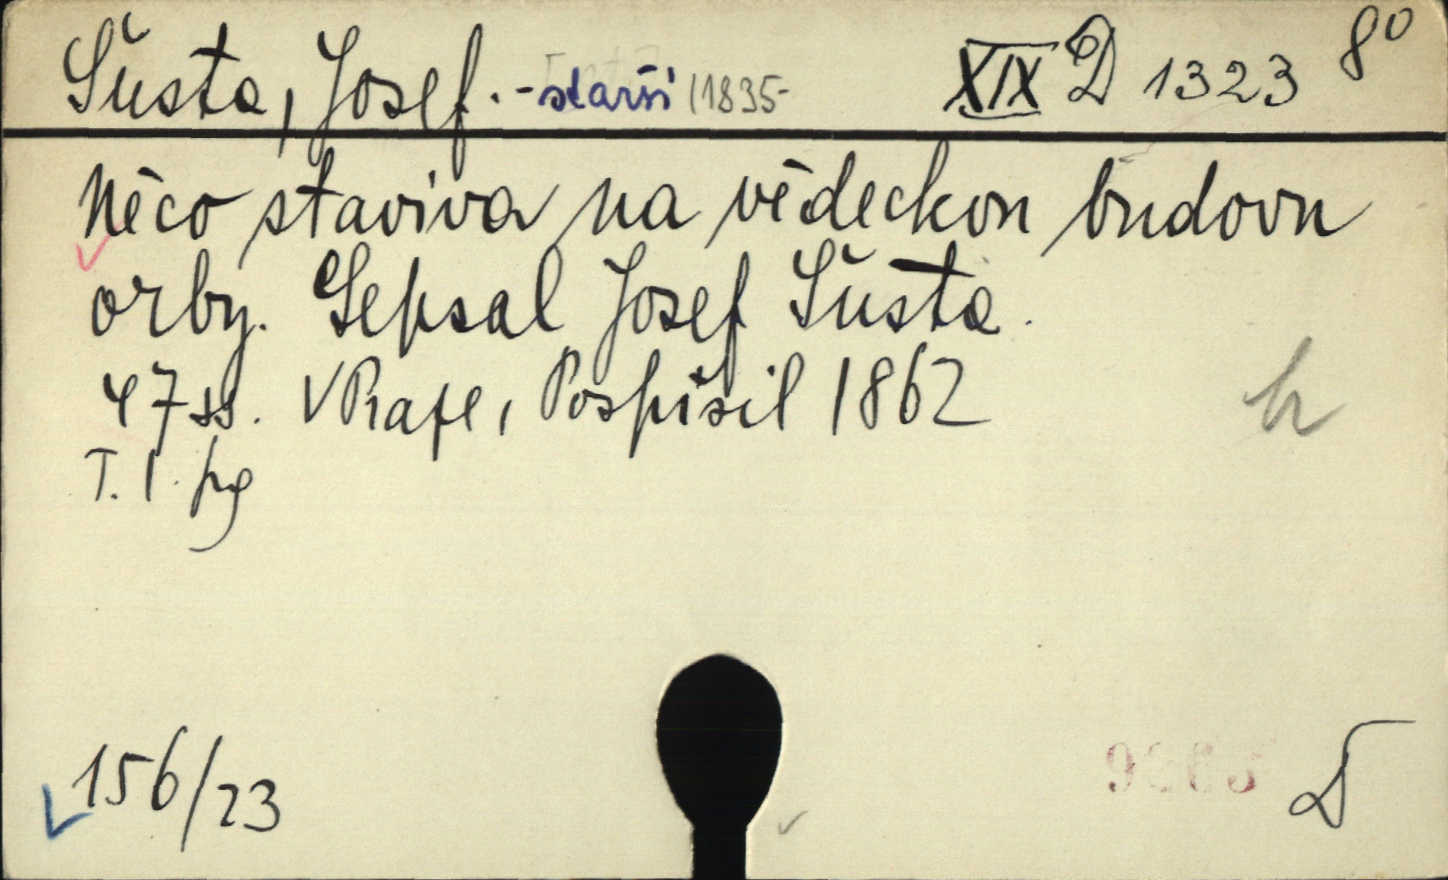 Šusta, Josef. - starší (1835- XIX D 1323 8°
Něco staviva na vědeckou budovu
orby. Sepsal Josef Šusta.
47 ss. V Praze, Pospíšil 1862
T. I. pg
h
156/23
D